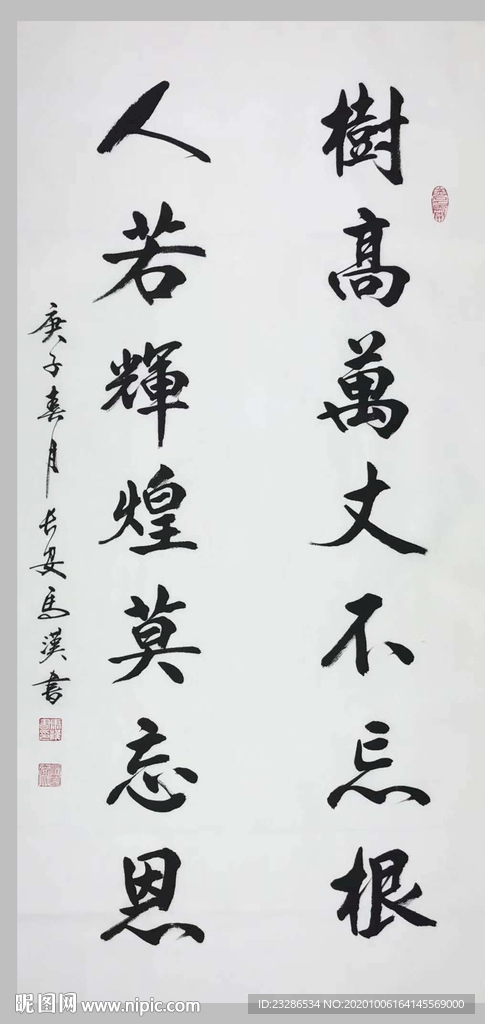 樹高萬丈不忘根
人若輝煌莫忘恩
庚子春月长安馬漢書
昵图网 www.nipic.com
ID:23286534 NO:20201006164145569000